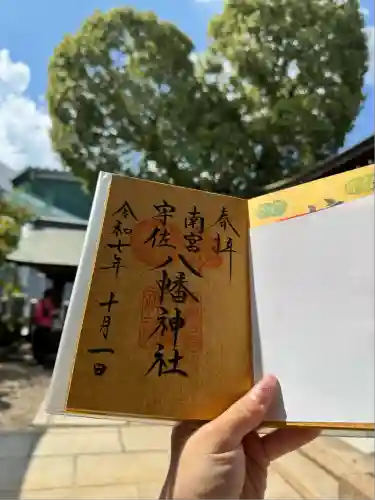 奉拝
南宮
宇佐八幡神社
令和七年
十月一日